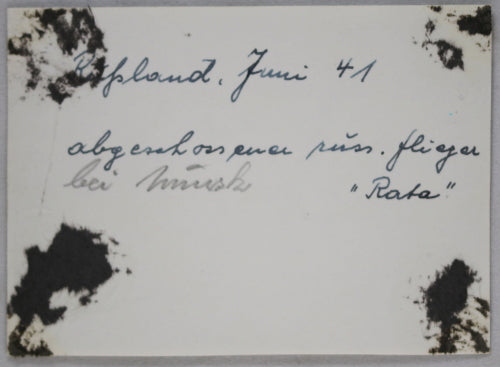 Rußland, Juni 41
abgeschossener russ. flieger
bei Minsk "Rata"